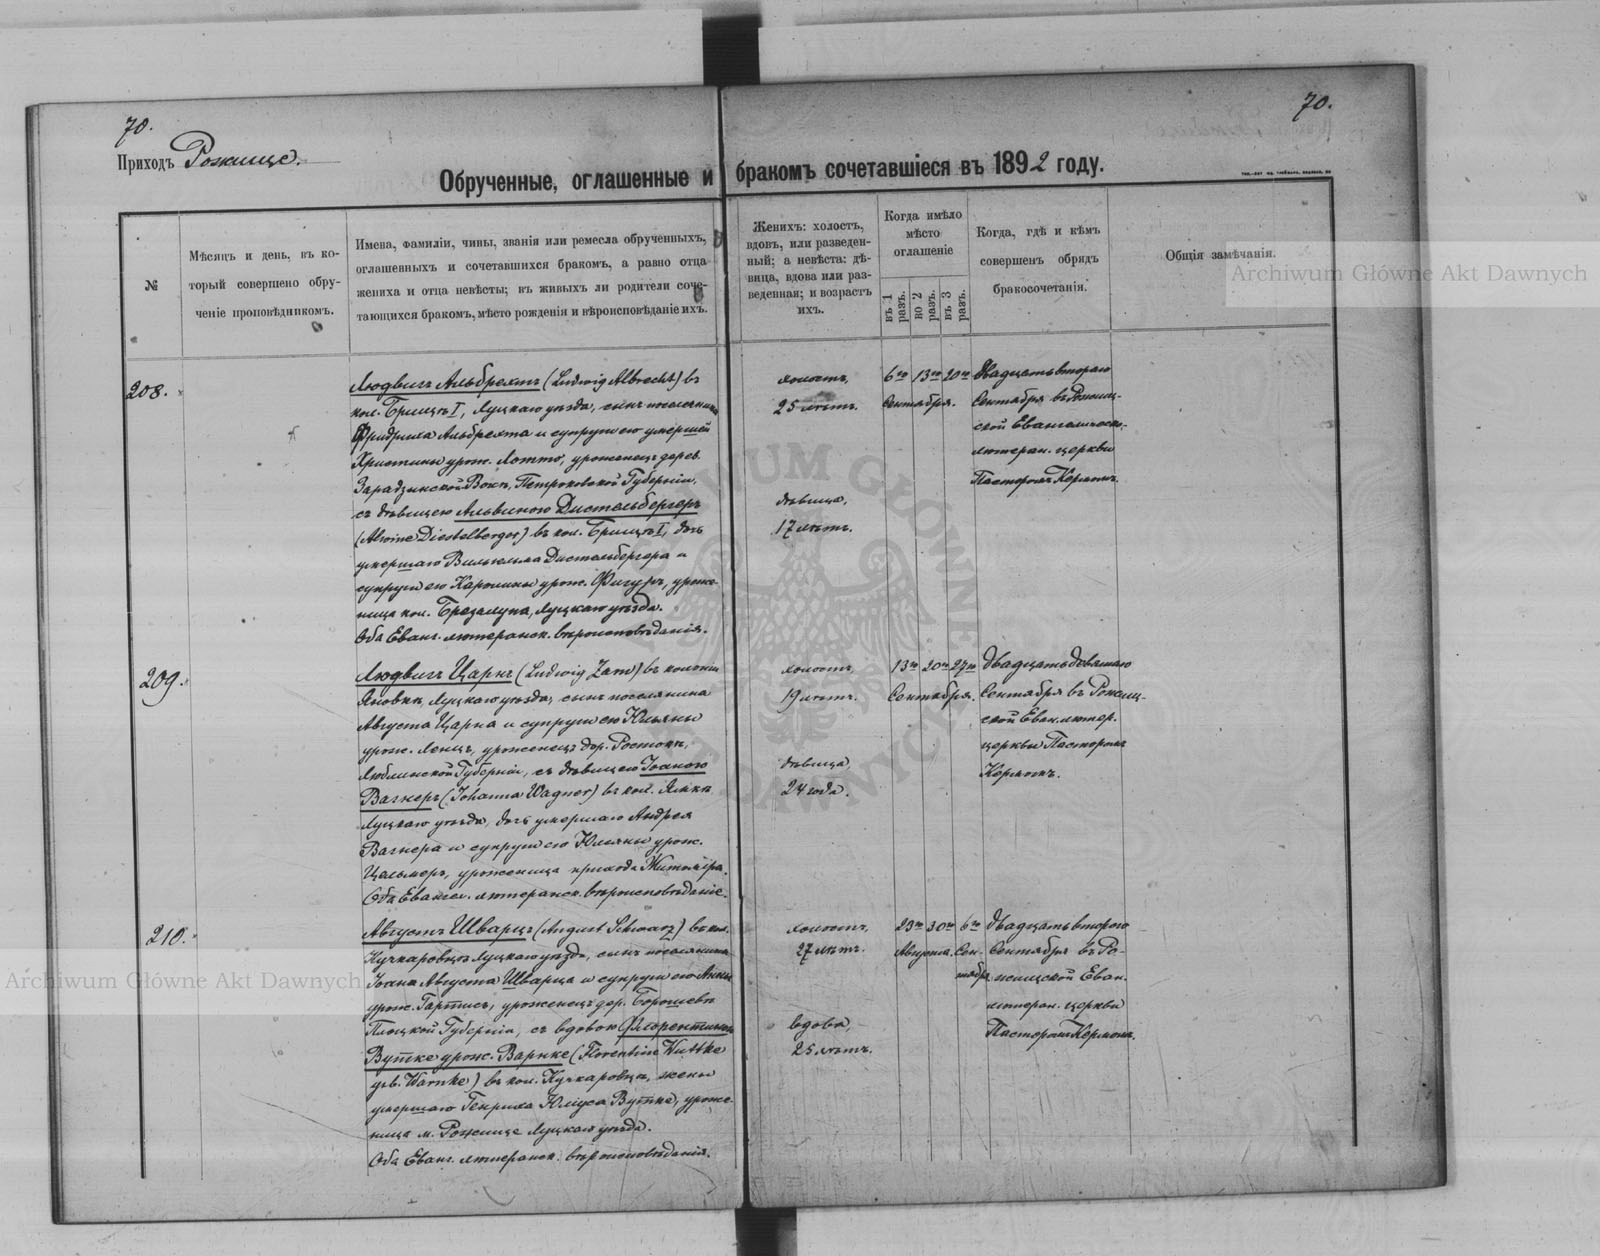 70.
70.
Приходъ Рожище.
Обрученные, оглашенные и бракомъ сочетавшіеся въ 1892 году.
№
Мѣсяцъ и день, въ ко-
торый совершено обру-
ченіе проповѣдникомъ.
Имена, фамиліи, чины, званія или ремесла обрученныхъ,
оглашенныхъ и сочетавшихся бракомъ, а равно отца
жениха и отца невѣсты; въ живыхъ ли родители соче-
тающихся бракомъ, мѣсто рожденія и вѣроисповѣданіе ихъ.
Женихъ: холостъ,
вдовъ, или разведен-
ный; а невѣста: дѣ-
вица, вдова или раз-
веденная; и возрастъ
ихъ.
Когда имѣло
мѣсто
оглашеніе
въ 1 разъ.
во 2 разъ.
въ 3 разъ.
Когда, гдѣ и кѣмъ
совершенъ обрядъ
бракосочетанія.
Общія замѣчанія.
208.
Людвигъ Альбрехтъ (Ludwig Albrecht) въ
кол. Брищъ I, Луцкаго уѣзда, сынъ поселянина
Фридриха Альбрехта и супруги его умершей
Христины урож. Лотто, уроженецъ дерев.
Петроковской Губерніи,
съ дѣвицею Альвиною Дистельбергеръ
(Alwine Diestelberger) въ кол. Брищъ I, дочь
умершаго Вильгельма Дистельбергера и
супруги его Каролины урож. Фигуръ, уроже-
ница кол. Брезалука, Луцкаго уѣзда.
Оба Еванг. лютеранск. вѣроисповѣданія.
холостъ,
25 лѣтъ.
дѣвица,
17 лѣтъ.
6го 13го 20го
Сентября.
Двадцать втораго
Сентября въ Рожищ-
ской Евангелическо-
лютеран. церкви
Пасторомъ Керномъ.
209.
Людвигъ Царнъ (Ludwig Zarn) въ колоніи
Яновка, Луцкаго уѣзда, сынъ поселянина
Августа Царна и супруги его Юльяны
урож. Ленцъ, уроженецъ дер. Ростокъ,
Люблинской Губерніи, съ дѣвицею Іоаною
Вагнеръ (Johanna Wagner) въ кол.
Луцкаго уѣзда, дочь умершаго Андрея
Вагнера и супруги его Юльяны урож.
Цельмеръ, уроженица прихода Житоміра.
Оба Евангел. лютеранск. вѣроисповѣданіе.
холостъ,
19 лѣтъ.
дѣвица,
24 года.
13го 20го 27го
Сентября.
Двадцать девятаго
Сентября въ Рожищ-
ской Еван. лютер.
церкви Пасторомъ
Керномъ.
210.
Августъ Шварцъ (August Schwarz) въ кол.
Кучкаровка Луцкаго уѣзда, сынъ поселянина
Іоана Августа Шварца и супруги его Анны
урож. уроженецъ дер.
Плоцкой Губерніи, съ вдовою Флорентиною
Вутке урож. Варнке (Florentine Wuttke
geb. Warnke) въ кол. Кучкаровка, жены
умершаго Генриха Юліуса Вутке, уроже-
ница м. Рожище Луцкаго уѣзда.
Оба Еванг. лютеранск. вѣроисповѣданія.
холостъ,
27 лѣтъ.
вдова,
25 лѣтъ.
23го 30го 6го
Августа. Сен-
тября
Двадцать втораго
Сентября въ Ро-
жищской Еван.
лютеран. церкви
Пасторомъ Керномъ.
Archiwum Główne Akt Dawnych
Archiwum Główne Akt Dawnych